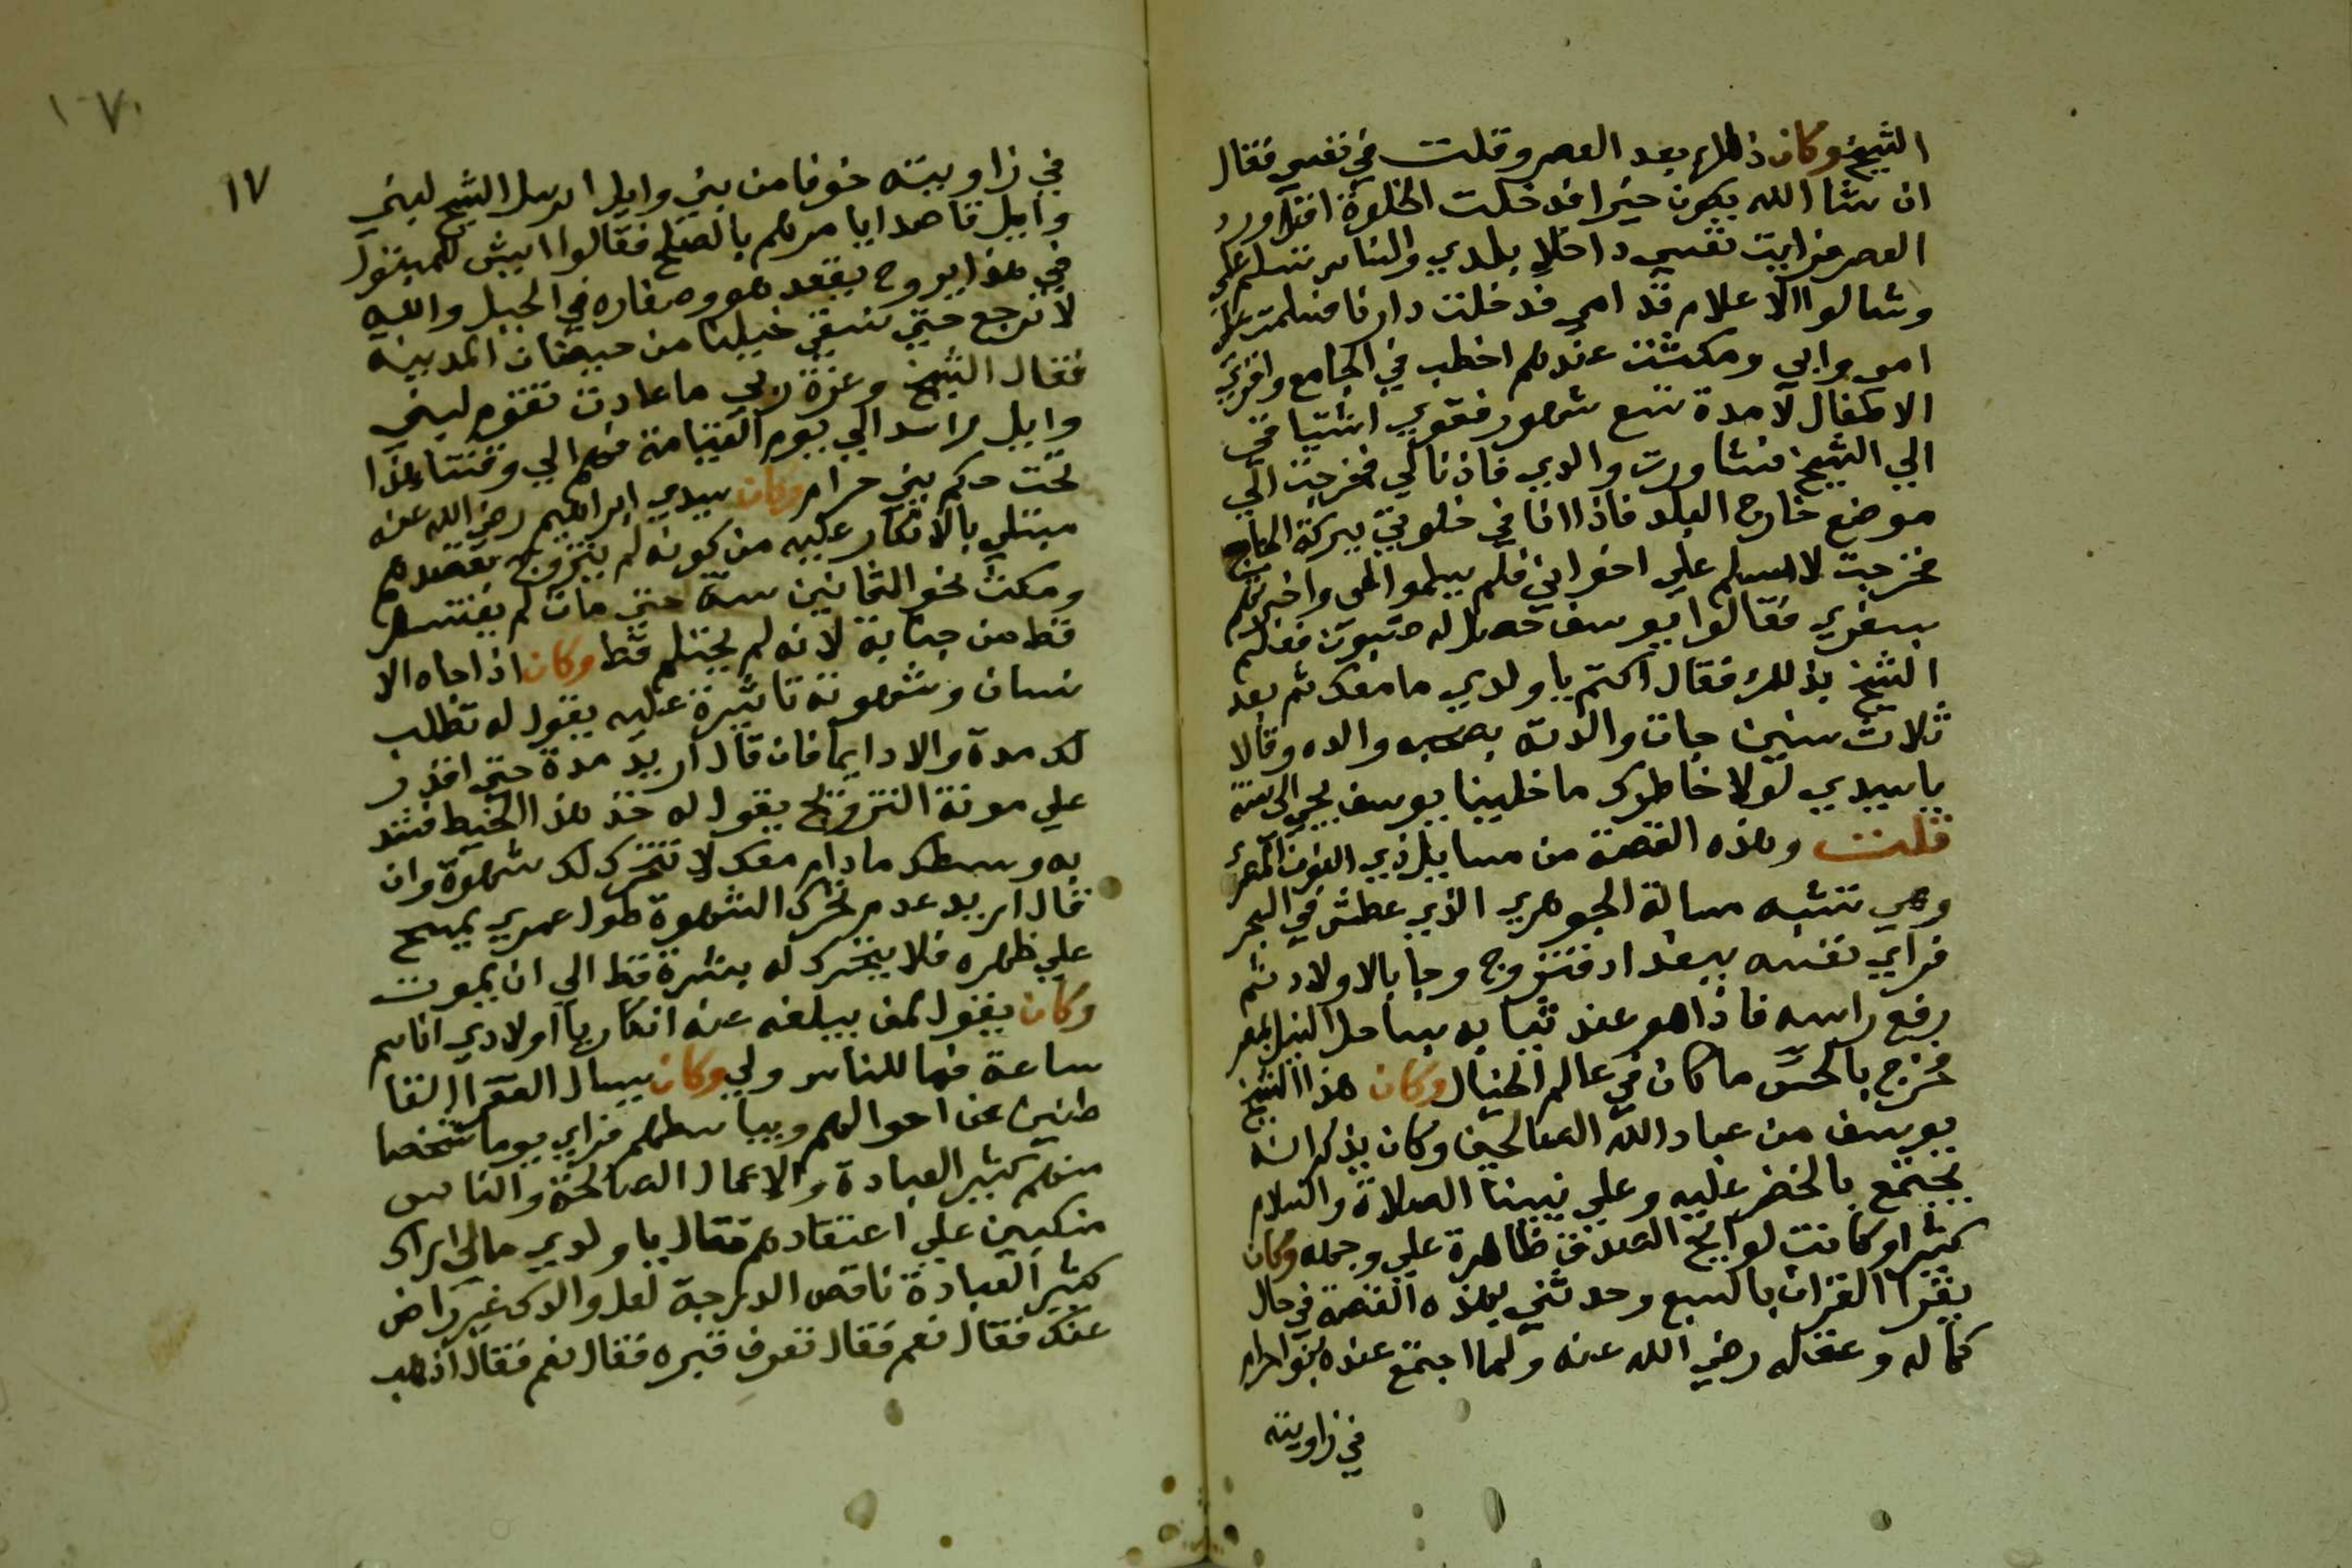 الشيخ وكان ذلك بعد العصر وقلت في نفسي فقال
ان شا الله يكون خيرا فدخلت الخلوة اقرا ورد
العصر فرايت نفسي داخلا بلدي والناس تسلم علي
وشالوا الاعلام قدامي فدخلت دارنا فسلمت علي
امي وابي ومكثت عندهم اخطب في الجامع واقري
الاطفال لامدة تسع شهور فقوي اشتياقي
الي الشيخ فشاورت والدي فاذنا لي فخرجت الي
موضع خارج البلد فاذا انا في خلوتي ببركة الحاج
فخرجت لاسلم علي اخواني فلم يسلموا الي واخبرتهم
بسفري فقالوا يوسف حصل له جنون فعلم
الشيخ بذلك فقال اكتم يا ولدي ما معك ثم بعد
ثلاث سنين جات والدته بصحبه والده وقالا
يا سيدي لولا خاطرك ما خلينا يوسف يجي الي سنة
قلت وهذه القصة من مسايل ذي النون المصري
وهي تشبه مسالة الجوهري الذي غطس في البحر
فراي نفسه ببغداد فتزوج وجا بالاولاد ثم
رفع راسه فاذا هو عند ثيابه بساحل النيل بمصر
فخرج بالحس ما كان في عالم الخيال وكان هذا الشيخ
يوسف من عباد الله الصالحين وكان يذكر انه
يجتمع بالخضر عليه وعلي نبينا الصلاة والسلام
كثيرا وكانت لوايح الصدق ظاهرة علي وجهه وكان
يقرا القران بالسبع وحدثني بهذه القصة في حال
كماله وعقله رضي الله عنه ولما اجتمع عنده بنوا حرام
في زاويته
١٧٠
١٧
في زاويته خوفا من بني وايل ارسل الشيخ لبني
وايل قاصدا يامرهم بالصلح فقالوا ايش للمبتول
في هذا يروح يقعد هو وصغاره في الجبل والله
لا نرجع حتي نسقي خيلنا من حيضان المدينة
فقال الشيخ وعزة ربي ما عادت تقوم لبني
وايل راس الي يوم القيامة فهم الي وقتنا هذا
تحت حكم بني حرام وكان سيدي ابراهيم رضي الله عنه
مبتلي بالانكار عليه من كونه لم يتزوج بقصدهم
ومكث نحو الثمانين سنة حتي مات لم يغتسل
قط من جنابة لانه لم يحتلم قط وكان اذا جاه الا
نسان وشهوته ثايرة عليه يقول له تطلب
لك مدة والا دايما فان قال اريد مدة حتي اقدر
علي مونة التزويج يقول له خذ هذا الخيط فشد
به وسطك ما دام معك لا تتحرك لك شهوة وان
قال اريد عدم تحرك الشهوة طول عمري يمسح
علي ظهره فلا يتحرك له بشرة قط الي ان يموت
وكان يقول لمن يبلغه عنه انكار يا اولادي انا سم
ساعة فما للناس ولي وكان يسال الفقرا القا
طنين عن احوالهم ويباسطهم فراي يوما شخصا
منهم كثير العبادة والاعمال الصالحة والناس
منكبين علي اعتقادهم فقال يا ولدي مالي اراك
كثير العبادة ناقص الدرجة لعل والدك غير راض
عنك فقال نعم فقال تعرف قبره فقال نعم فقال اذهب